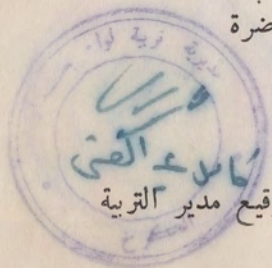 ضرة
مديرية تربية لواء
كامل ع الغني
قيع مدير التربية